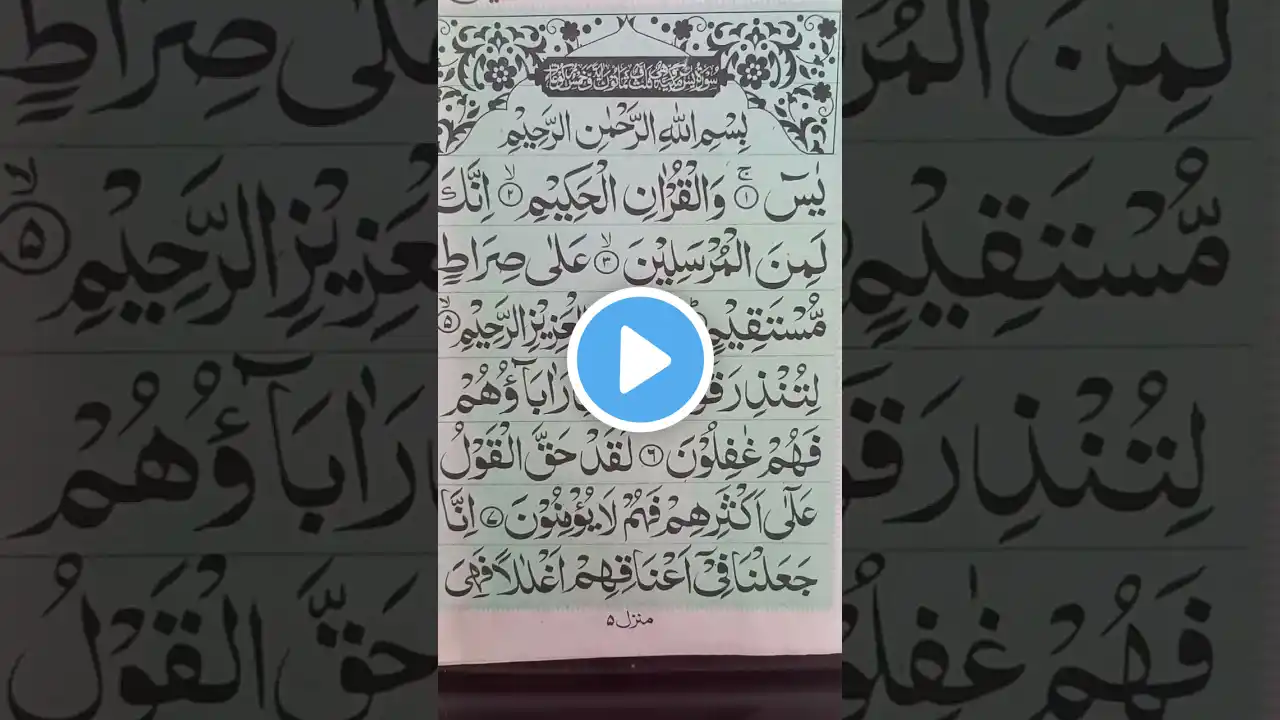 بِسْمِ اللّٰهِ الرَّحْمٰنِ الرَّحِيْمِ
يٰسٓ ۚ ﴿۱﴾ وَالْقُرْاٰنِ الْحَكِيْمِ ۙ ﴿۲﴾ اِنَّكَ
لَمِنَ الْمُرْسَلِيْنَ ۙ ﴿۳﴾ عَلٰى صِرَاطٍ
مُّسْتَقِيْمٍ الْعَزِيْزِ الرَّحِيْمِ ۙ ﴿۵﴾
لِتُنْذِرَ اٰبَآؤُهُمْ
فَهُمْ غٰفِلُوْنَ ﴿۶﴾ لَقَدْ حَقَّ الْقَوْلُ
عَلٰٓى اَكْثَرِهِمْ فَهُمْ لَا يُؤْمِنُوْنَ ﴿۷﴾ اِنَّا
جَعَلْنَا فِيْٓ اَعْنَاقِهِمْ اَغْلٰلًا فَهِىَ
منزل ۵